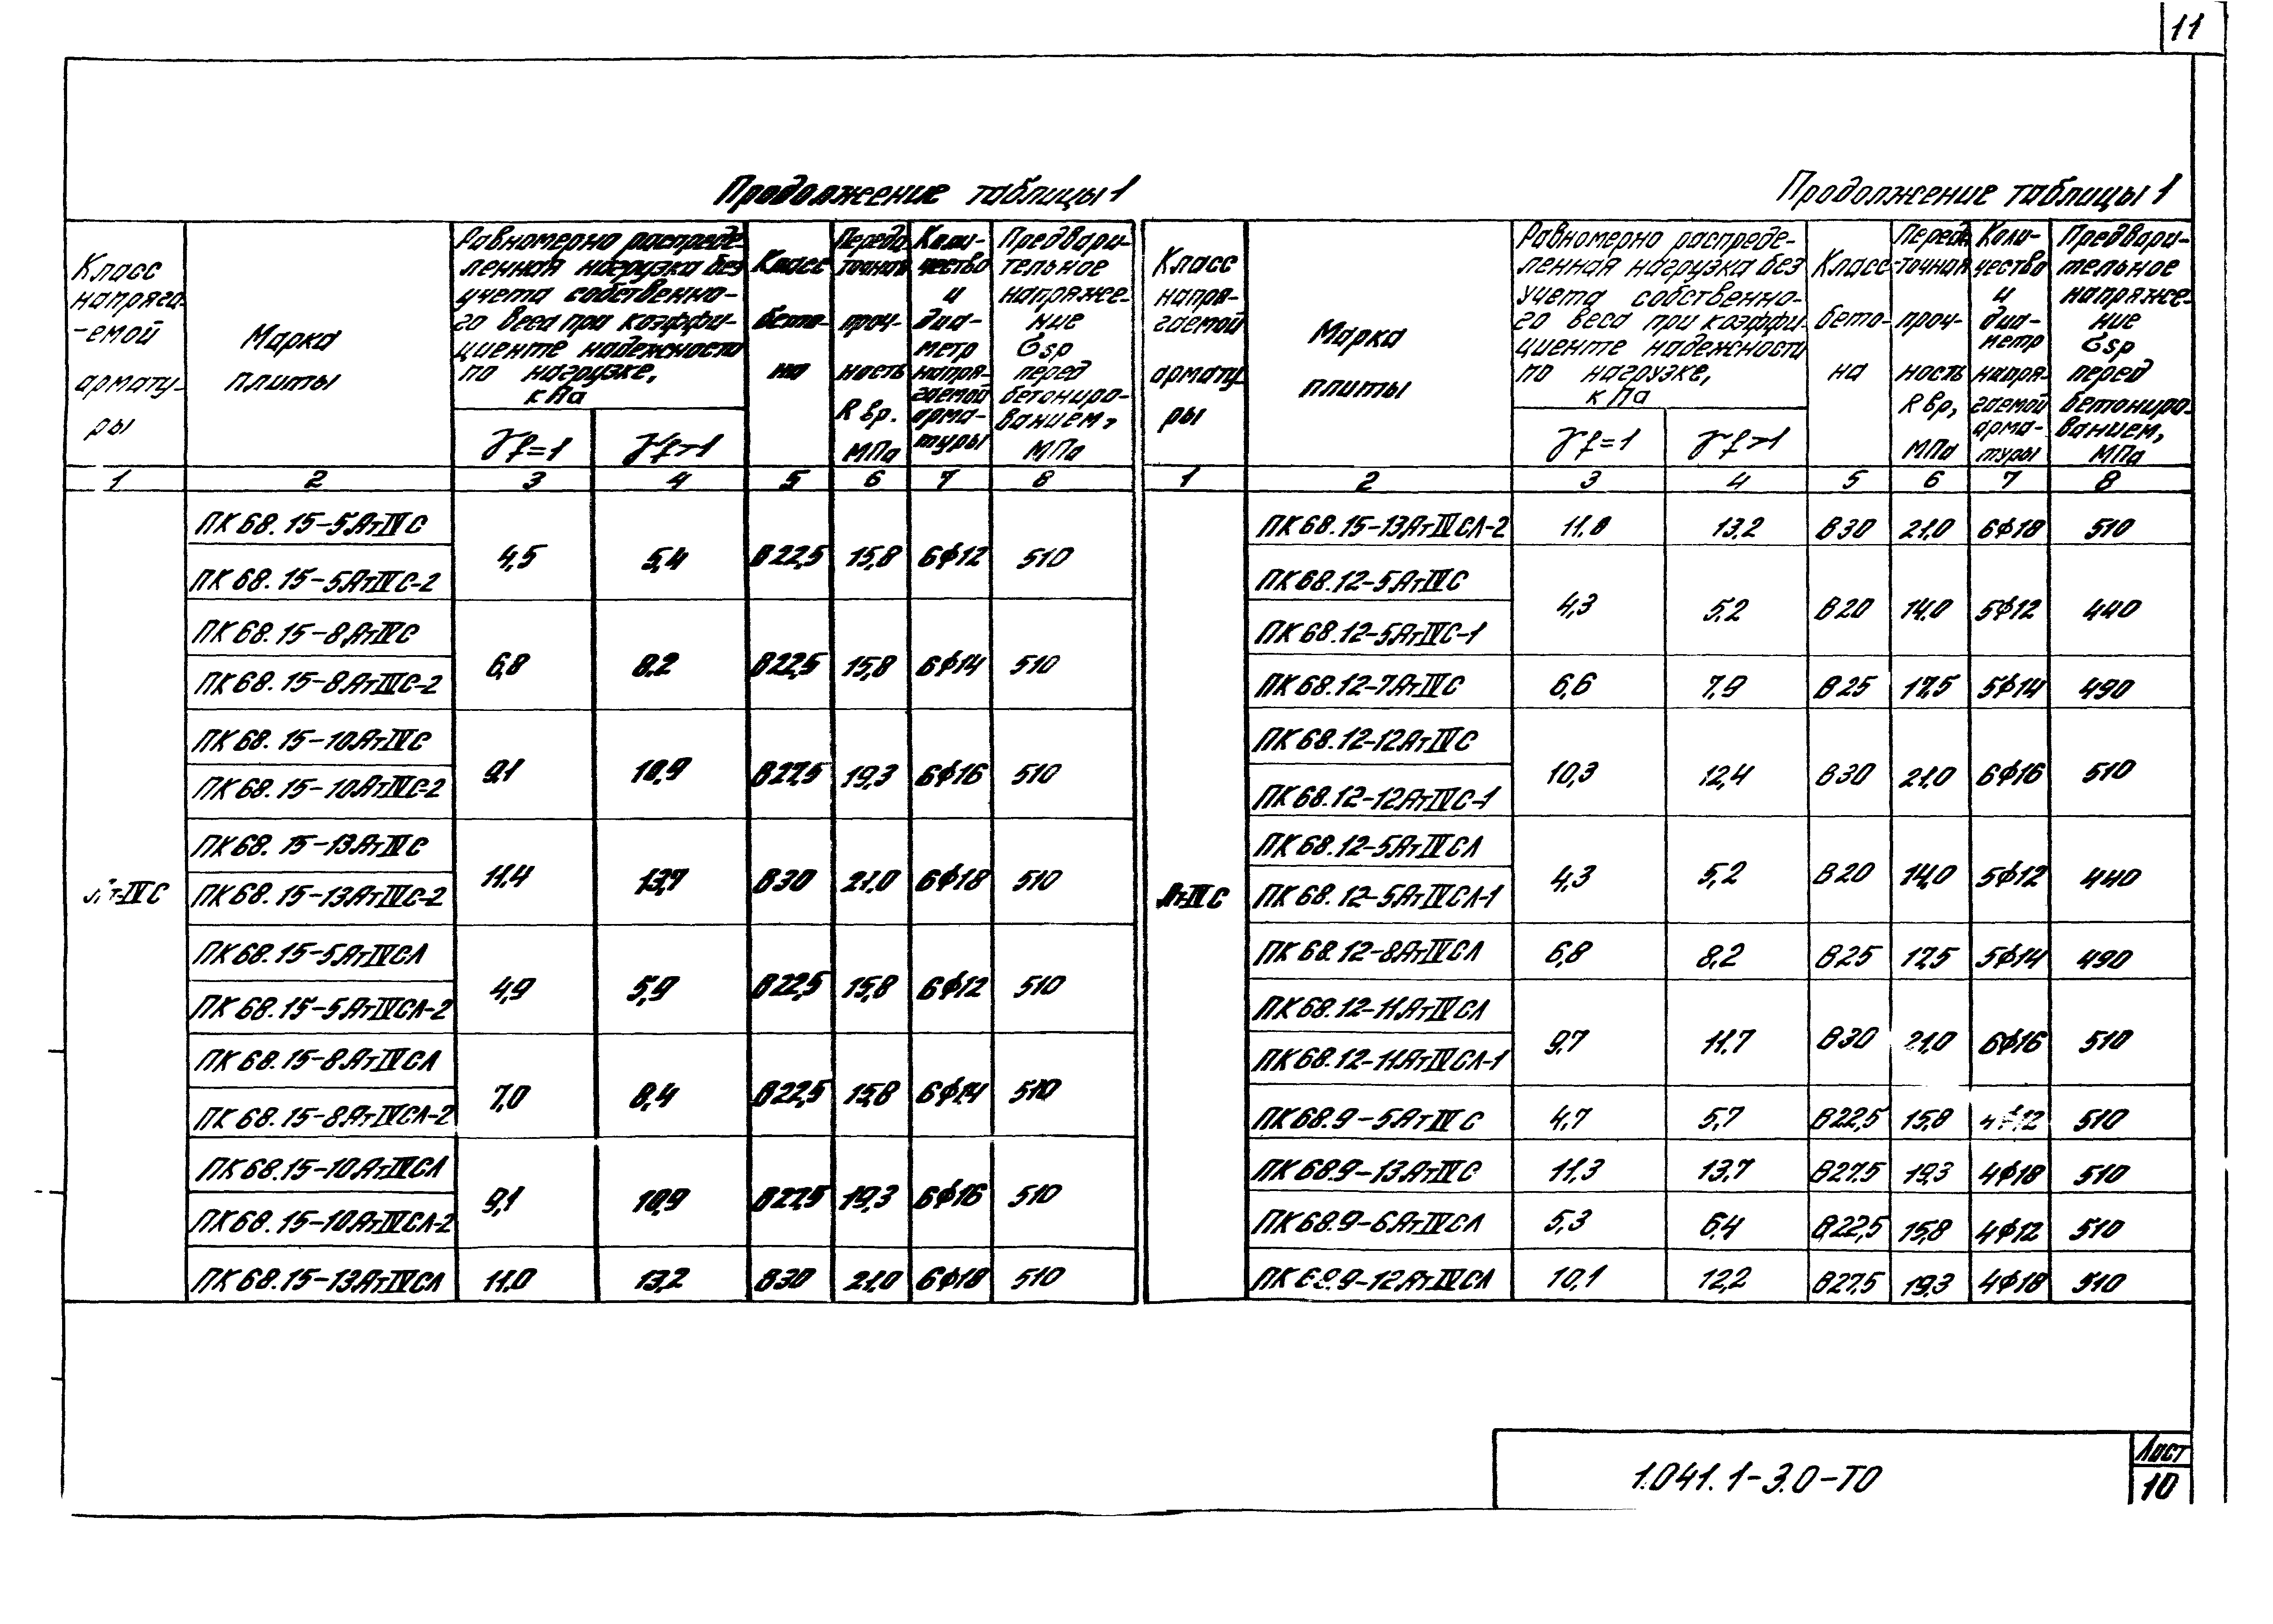 11
Продолжение таблицы 1
Класс
напряга-
-емой
армату-
ры
Марка
плиты
Равномерно распреде-
ленная нагрузка без
учета собственно-
го веса при коэффи-
циенте надежности
по нагрузке,
кПа
γf=1
γf>1
Класс
бето-
на
Переда
точная
проч-
ность
Rвр.
МПа
Коли-
чество
и
диа-
метр
напря-
гаемой
арма-
туры
Предвари-
тельное
напряже-
ние
σsp
перед
бетониро-
ванием,
МПа
1 2 3 4 5 6 7 8
Ат-IVС
ПК 68.15-5АтIVС
ПК 68.15-5АтIVС-2
4,5 5,4 В22,5 15,8 6ф12 510
ПК 68.15-8АтIVС
ПК 68.15-8АтIVС-2
6,8 8.2 В22,5 15,8 6ф14 510
ПК 68.15-10АтIVС
ПК 68.15-10АтIVС-2
9,1 10,9 В27,5 19,3 6ф16 510
ПК 68.15-13АтIVС
ПК 68.15-13АтIVС-2
11,4 13,7 В30 21,0 6ф18 510
ПК 68.15-5АтIVСЛ
ПК 68.15-5АтIVСЛ-2
4,9 5,9 В22,5 15,8 6ф12 510
ПК 68.15-8АтIVСЛ
ПК 68.15-8АтIVСЛ-2
7,0 8,4 В22,5 15,8 6ф14 510
ПК 68.15-10АтIVСЛ
ПК 68.15-10АтIVСЛ-2
9,1 10,9 В27,5 19,3 6ф16 510
ПК 68.15-13АтIVСЛ 11,0 13,2 В30 21,0 6ф18 510
Продолжение таблицы 1
Класс
напря-
гаемой
армату-
ры
Марка
плиты
Равномерно распреде-
ленная нагрузка без
учета собственно-
го веса при коэффи-
циенте надежности
по нагрузке,
кПа
γf=1
γf>1
Класс
бето-
на
Переда
-точная
проч-
ность
Rвр,
МПа
Коли-
чество
и
диа-
метр
напря-
гаемой
арма-
туры
Предвари-
тельное
напряже-
ние
σsp
перед
бетониро-
ванием,
МПа
1 2 3 4 5 6 7 8
Ат-IVС
ПК 68.15-13АтIVСЛ-2 11,0 13,2 В30 21,0 6ф18 510
ПК 68.12-5АтIVС
ПК 68.12-5АтIVС-1
4,3 5,2 В20 14,0 5ф12 440
ПК 68.12-7АтIVС 6,6 7,9 В25 17,5 5ф14 490
ПК 68.12-12АтIVС
ПК 68.12-12АтIVС-1
10,3 12,4 В30 21,0 6ф16 510
ПК 68.12-5АтIVСЛ
ПК 68.12-5АтIVСЛ-1
4,3 5,2 В20 14,0 5ф12 440
ПК 68.12-8АтIVСЛ 6,8 8,2 В25 17,5 5ф14 490
ПК 68.12-11АтIVСЛ
ПК 68.12-11АтIVСЛ-1
9,7 11,7 В30 21,0 6ф16 510
ПК 68.9-5АтIVС 4,7 5,7 В22,5 15,8 4ф12 510
ПК 68.9-13АтIVС 11,3 13,7 В27,5 19,3 4ф18 510
ПК 68.9-6АтIVСЛ 5,3 6,4 В22,5 15,8 4ф12 510
ПК 68.9-12АтIVСЛ 10,1 12,2 В27,5 19,3 4ф18 510
1.041.1-3.0-ТО
Лист
10